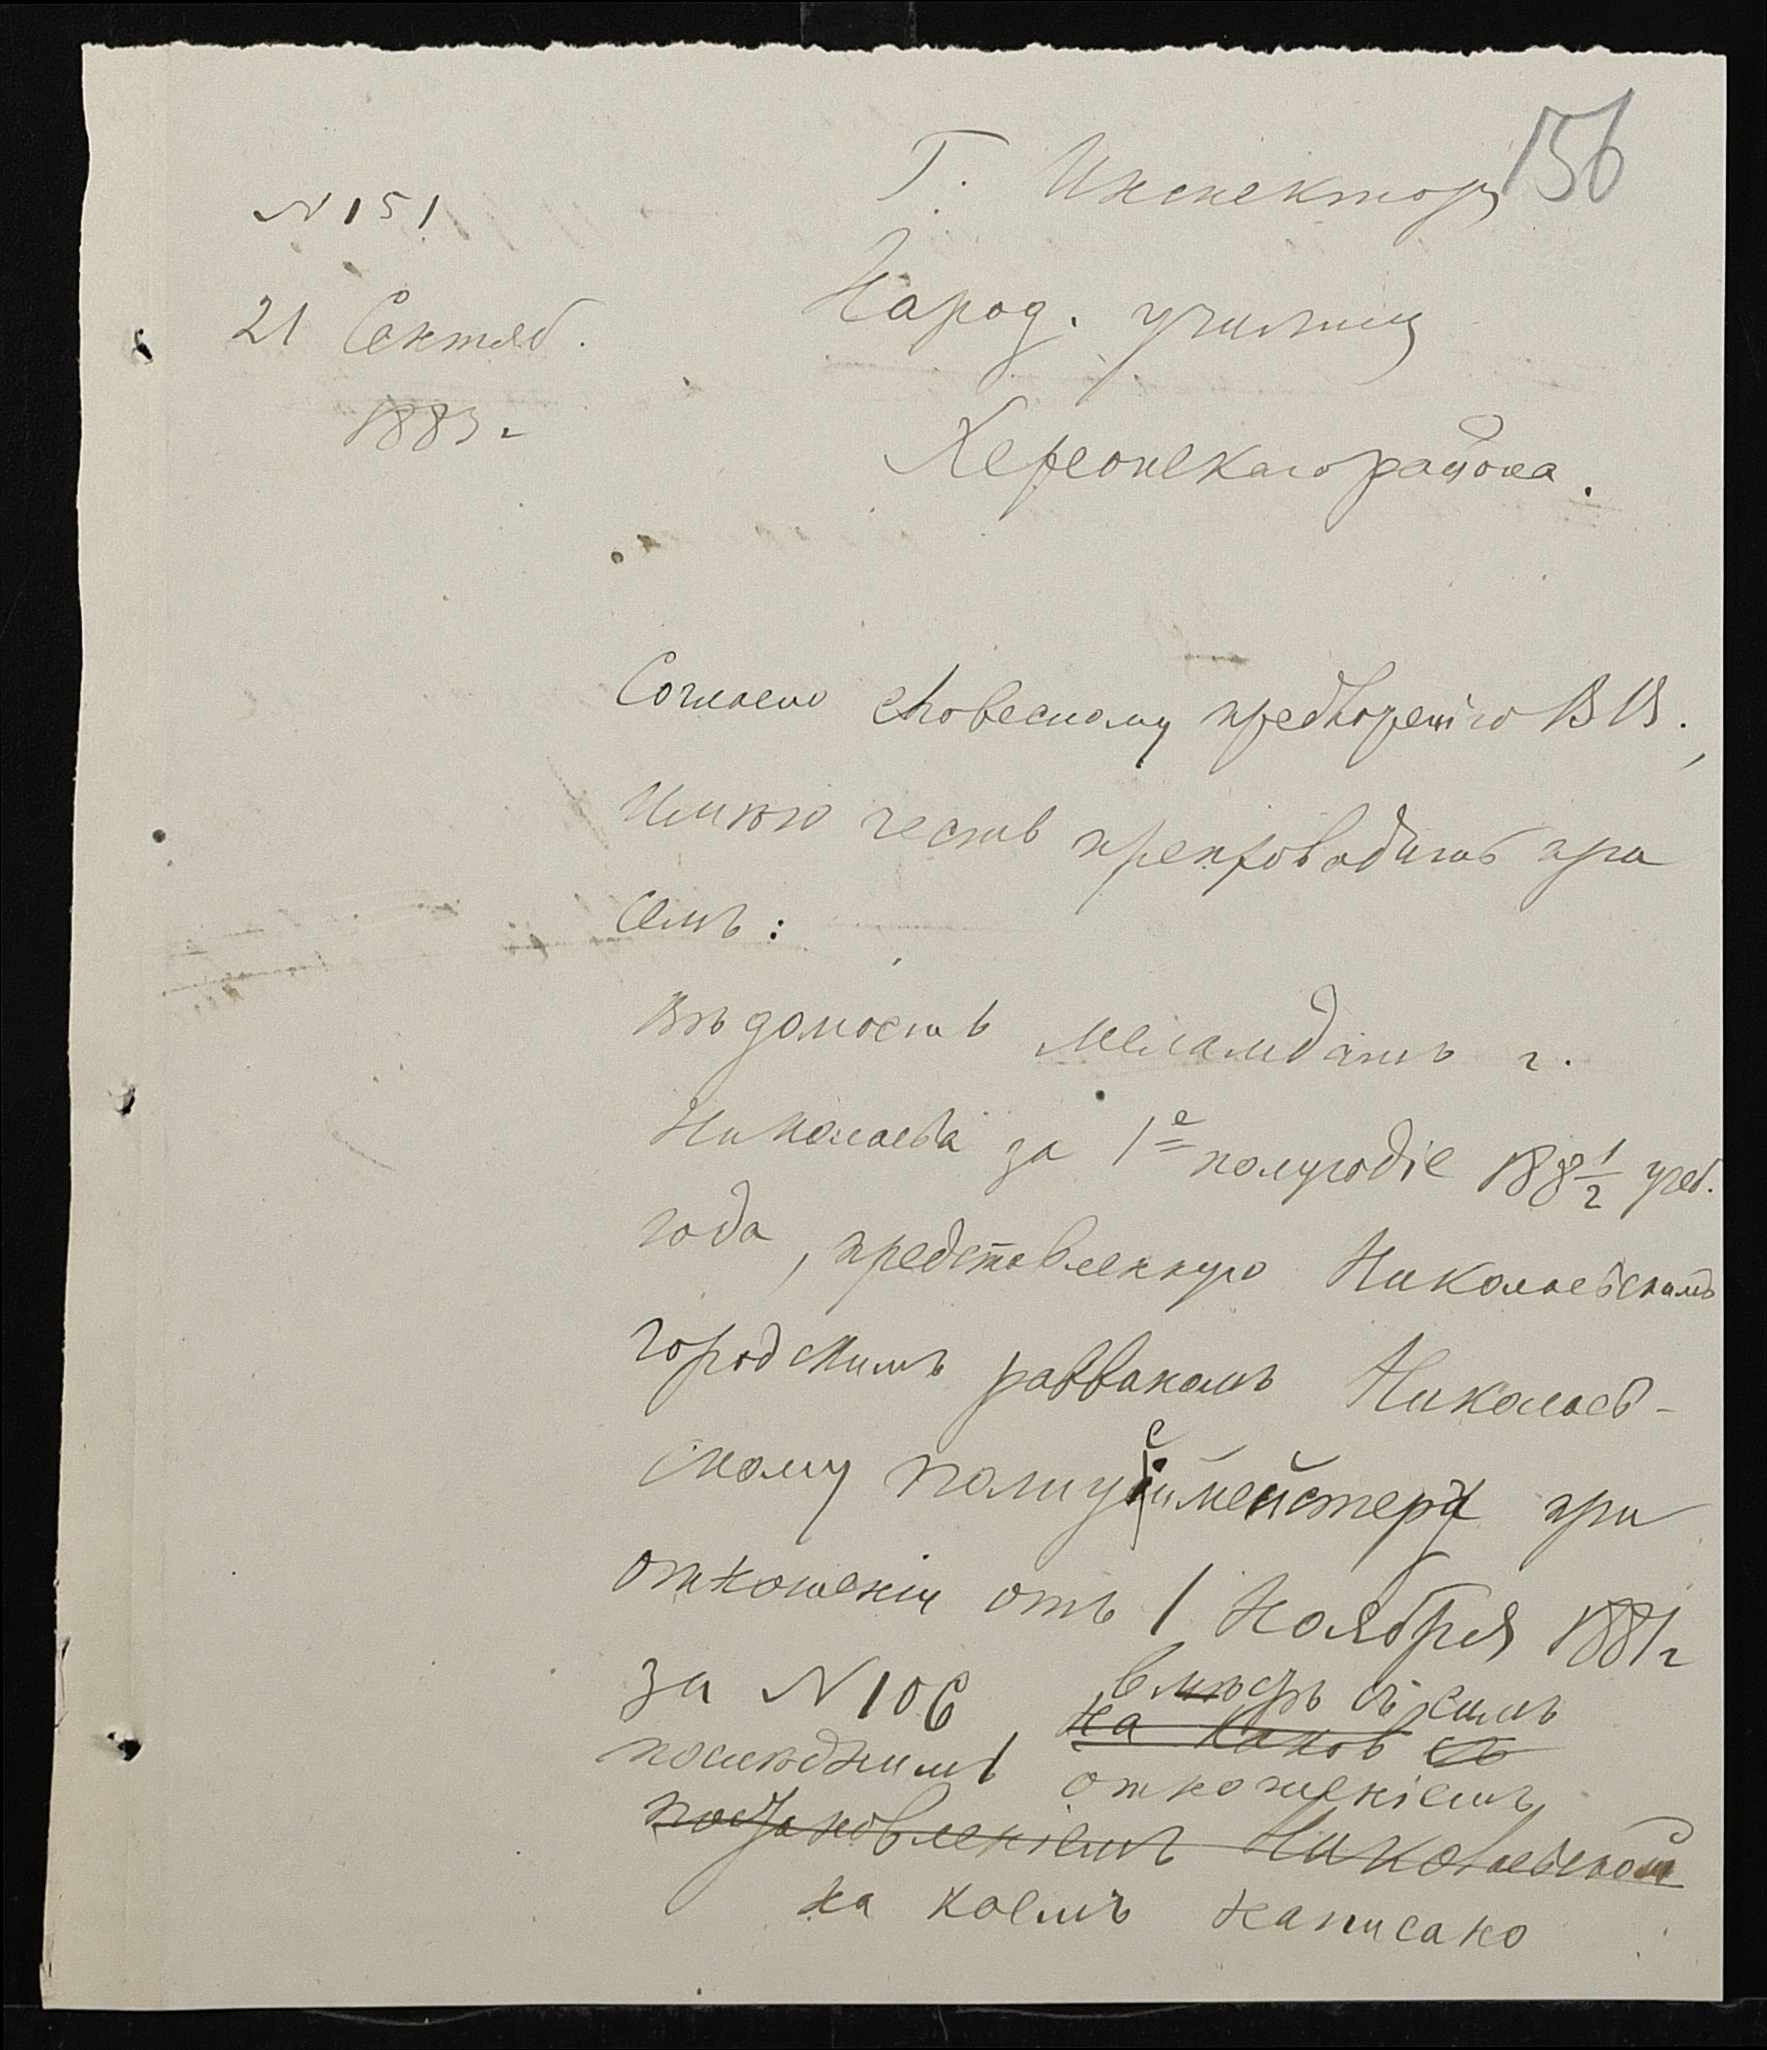 156
N 151
21 Сентяб.
1883 г
Г. Инспектору
Народ. училищ
Херсонскаго района.
Согласно словесному предложенію В В.,
Имѣю честь препроводить при
семъ:
Вѣдомость меламдамъ г.
Николаева за 1е полугодіе 188 1/2 учеб.
года, представленную Николаевскимъ
городскимъ раввиномъ Николаев-
скому полицеймейстеру при
отношеніи отъ 1 Ноября 1881 г
за N 106, вмѣстѣ съ симъ
на каков
послѣднимъ отношеніемъ
постановленіемъ Николаевской
на коемъ написано